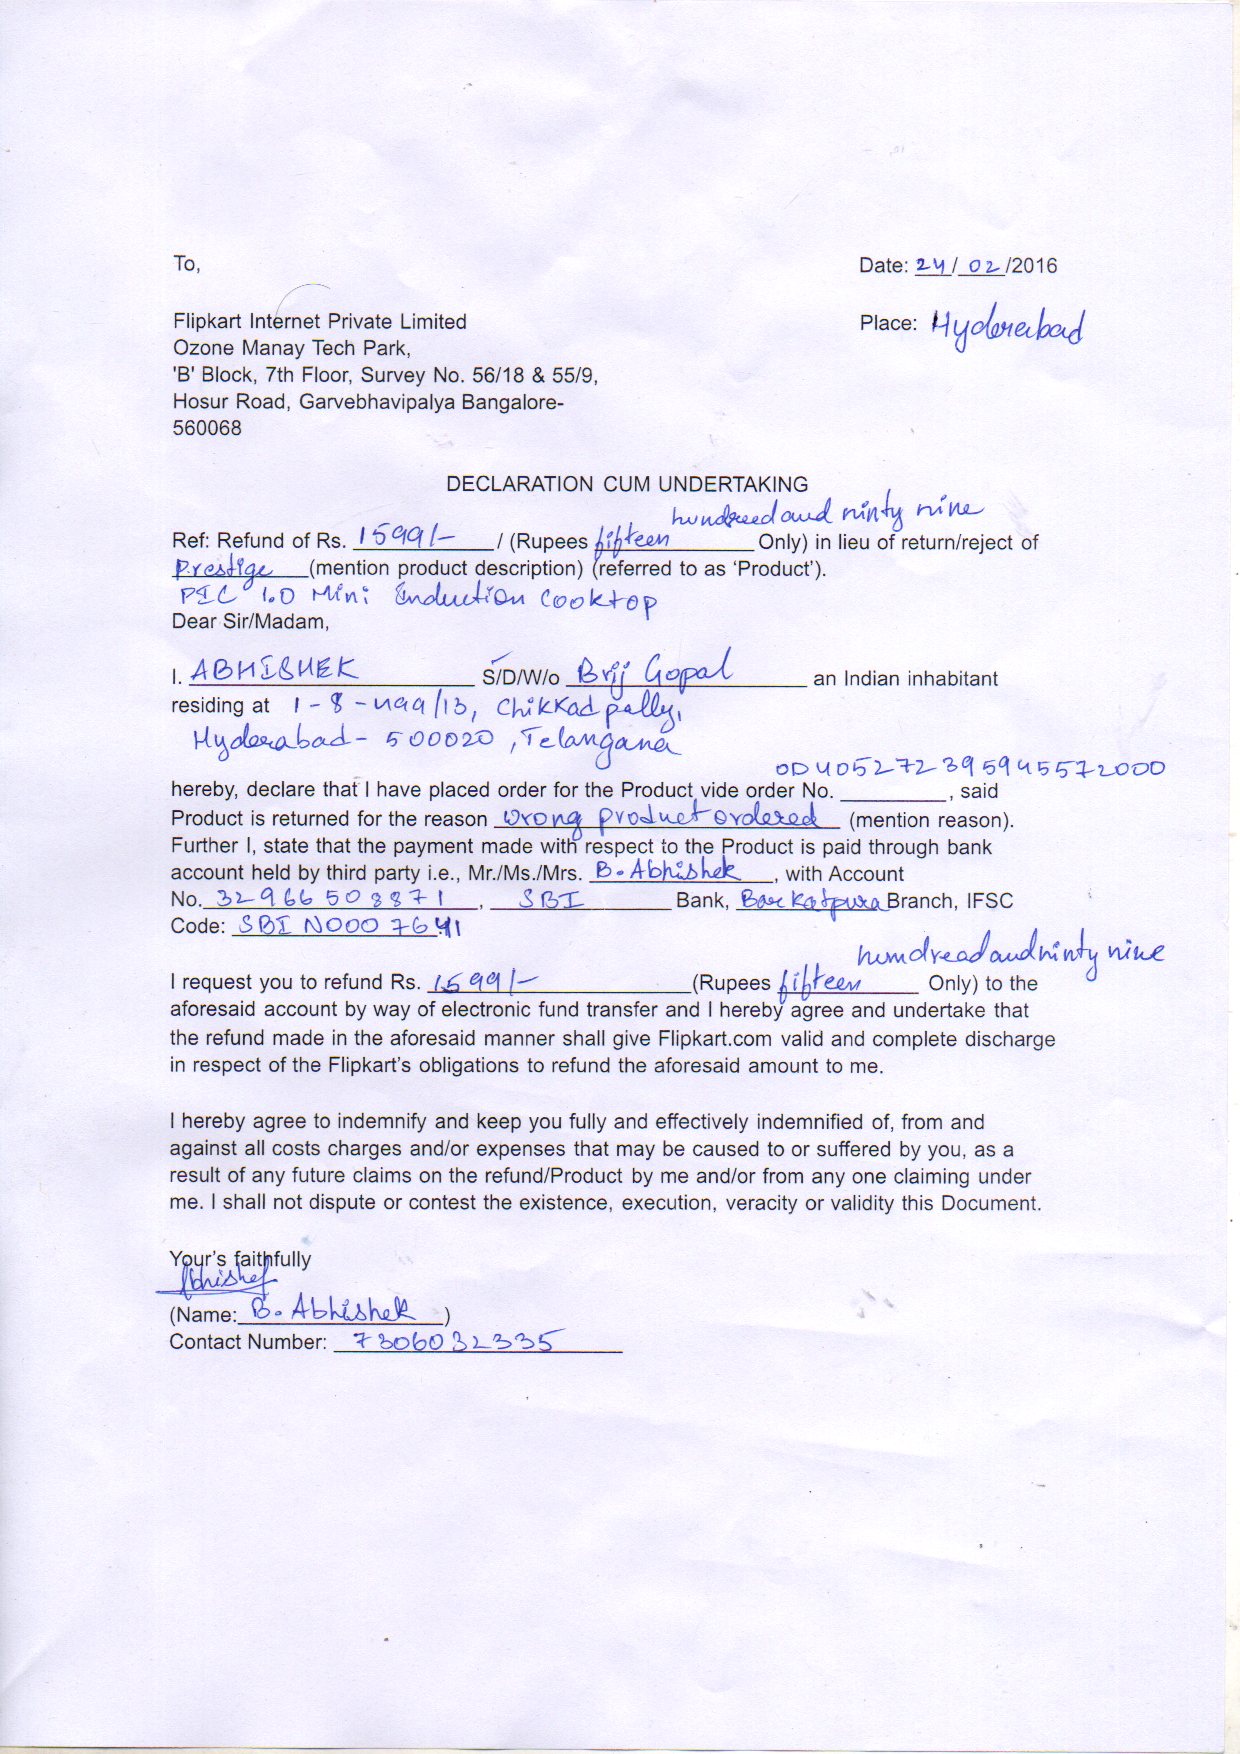 To,
Date: 24/ 02 /2016
Flipkart Internet Private Limited
Place: Hyderabad
Ozone Manay Tech Park,
'B' Block, 7th Floor, Survey No. 56/18 & 55/9,
Hosur Road, Garvebhavipalya Bangalore-
560068
DECLARATION CUM UNDERTAKING
hundreed and ninty nine
Ref: Refund of Rs. 1599/- / (Rupees fifteen Only) in lieu of return/reject of
Prestige (mention product description) (referred to as ‘Product’).
PIC 1.0 Mini Induction Cooktop
Dear Sir/Madam,
I. ABHISHEK S/D/W/o Brij Gopal an Indian inhabitant
residing at 1-8-499/13, Chikkadpally,
Hyderabad - 500020, Telangana
OD405272395945572000
hereby, declare that I have placed order for the Product vide order No. ________, said
Product is returned for the reason wrong product ordered (mention reason).
Further I, state that the payment made with respect to the Product is paid through bank
account held by third party i.e., Mr./Ms./Mrs. B. Abhishek, with Account
No. 32966508871, SBI Bank, Barkatpura Branch, IFSC
Code: SBIN0007641
hundread and ninty nine
I request you to refund Rs. 1599/- (Rupees fifteen Only) to the
aforesaid account by way of electronic fund transfer and I hereby agree and undertake that
the refund made in the aforesaid manner shall give Flipkart.com valid and complete discharge
in respect of the Flipkart’s obligations to refund the aforesaid amount to me.
I hereby agree to indemnify and keep you fully and effectively indemnified of, from and
against all costs charges and/or expenses that may be caused to or suffered by you, as a
result of any future claims on the refund/Product by me and/or from any one claiming under
me. I shall not dispute or contest the existence, execution, veracity or validity this Document.
Your’s faithfully
Abhishek
(Name: B. Abhishek)
Contact Number: 7306032335